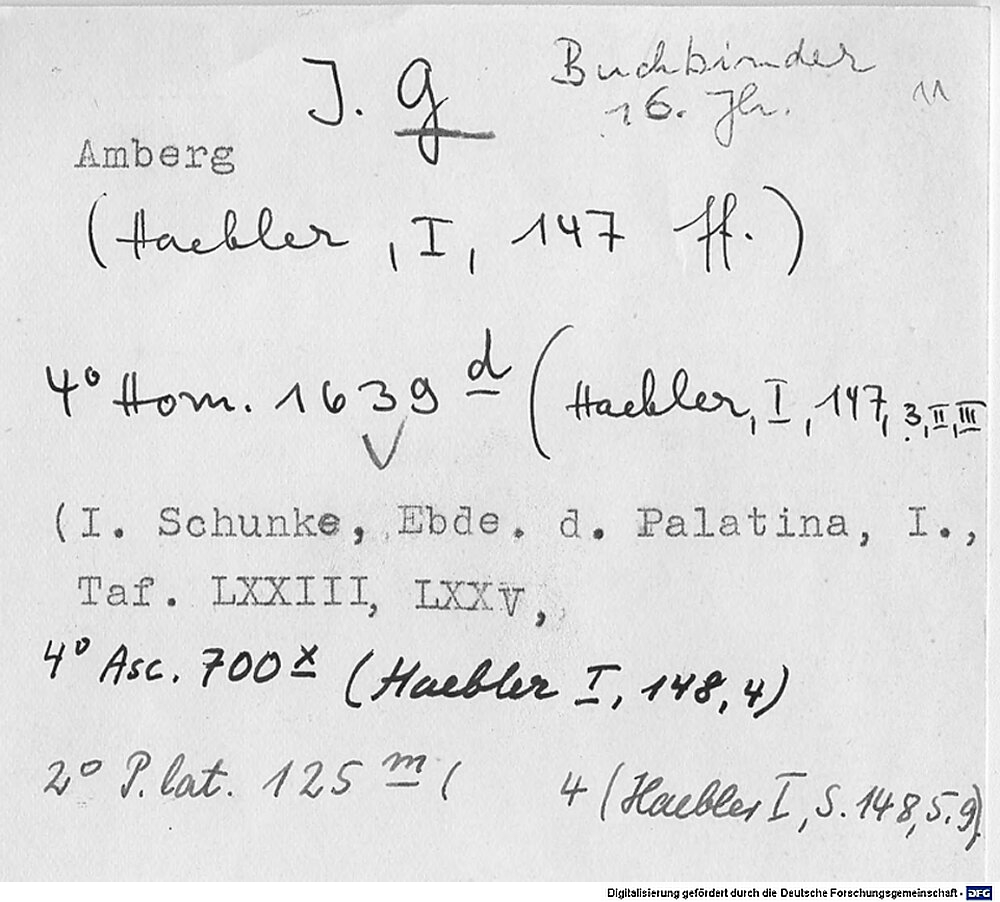 J. G Buchbinder
16. Jh. 11
Amberg
(Haebler, I, 147 ff.)
4° Hom. 1639 d (Haebler, I, 147, 3, II, III
(I. Schunke, Ebde. d. Palatina, I.,
Taf. LXXIII, LXXV,
4° Asc. 700 x (Haebler I, 148, 4)
2° P. lat. 125 m ( 4 (Haebler I, S. 148, 5. 9)
Digitalisierung gefördert durch die Deutsche Forschungsgemeinschaft - DFG